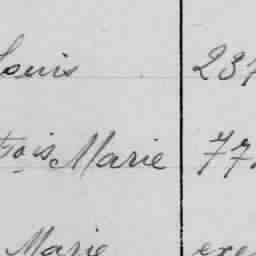 Louis 237
çois Marie 77
Marie exe